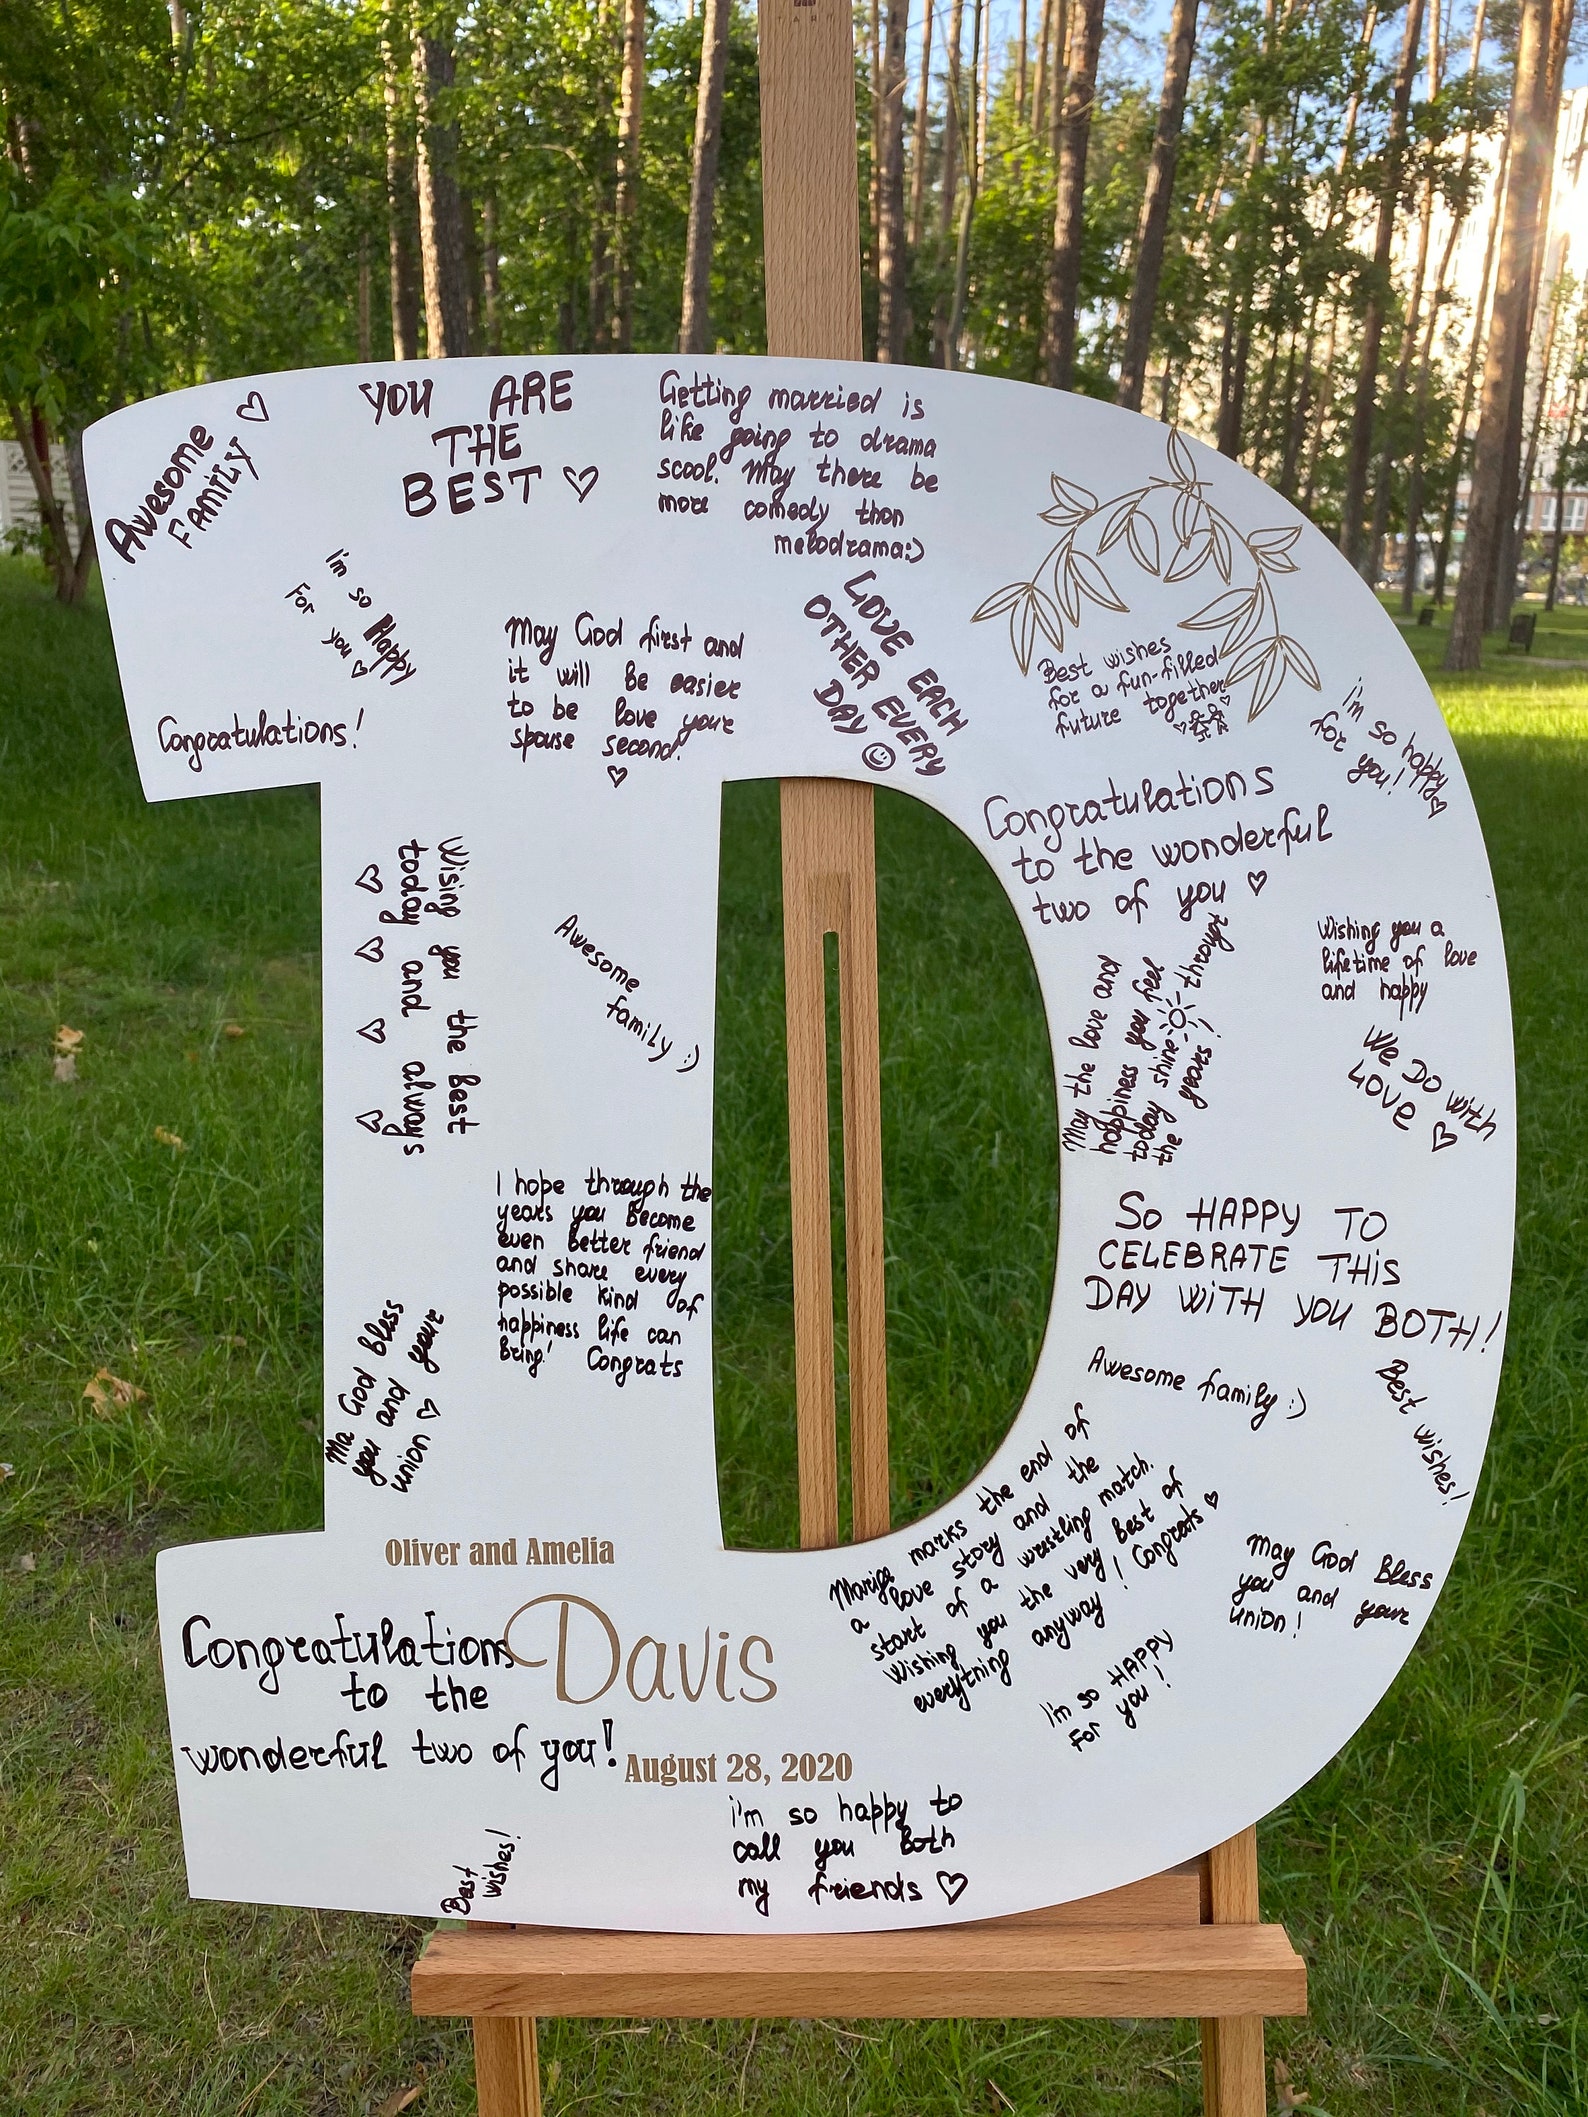 Awesome
FAMILY
YOU ARE
THE
BEST
Getting married is
like going to drama
scool. May there be
more comedy than
melodrama:)
I'm so Happy
For you
Congratulations!
May God first and
it will be easier
to be love your
spouse second!
LOVE EACH
OTHER EVERY
DAY
Best wishes
for a fun-filled
future together
i'm so happy
for you!
Congratulations
to the wonderful
two of you
Wising you the best
today and always
Awesome
family :)
May the love and
happiness you feel
today shine through
the years!
Wishing you a
lifetime of love
and happy
We Do with
LOVE
I hope through the
years you become
even better friend
and share every
possible kind of
happiness life can
Bring! Congrats
So HAPPY TO
CELEBRATE THiS
DAY WiTH YOU BOTH!
Ma God Bless
you and your
union
Awesome family :)
Best wishes!
Mariga marks the end of
a love story and the
start of a wrestling match.
Wishing you the very best of
everything anyway! Congrats
May God Bless
you and your
union!
I'm so HAPPY
For you!
Oliver and Amelia
Davis
August 28, 2020
Congratulations
to the
wonderful two of you!
Best
wishes!
i'm so happy to
call you both
my friends